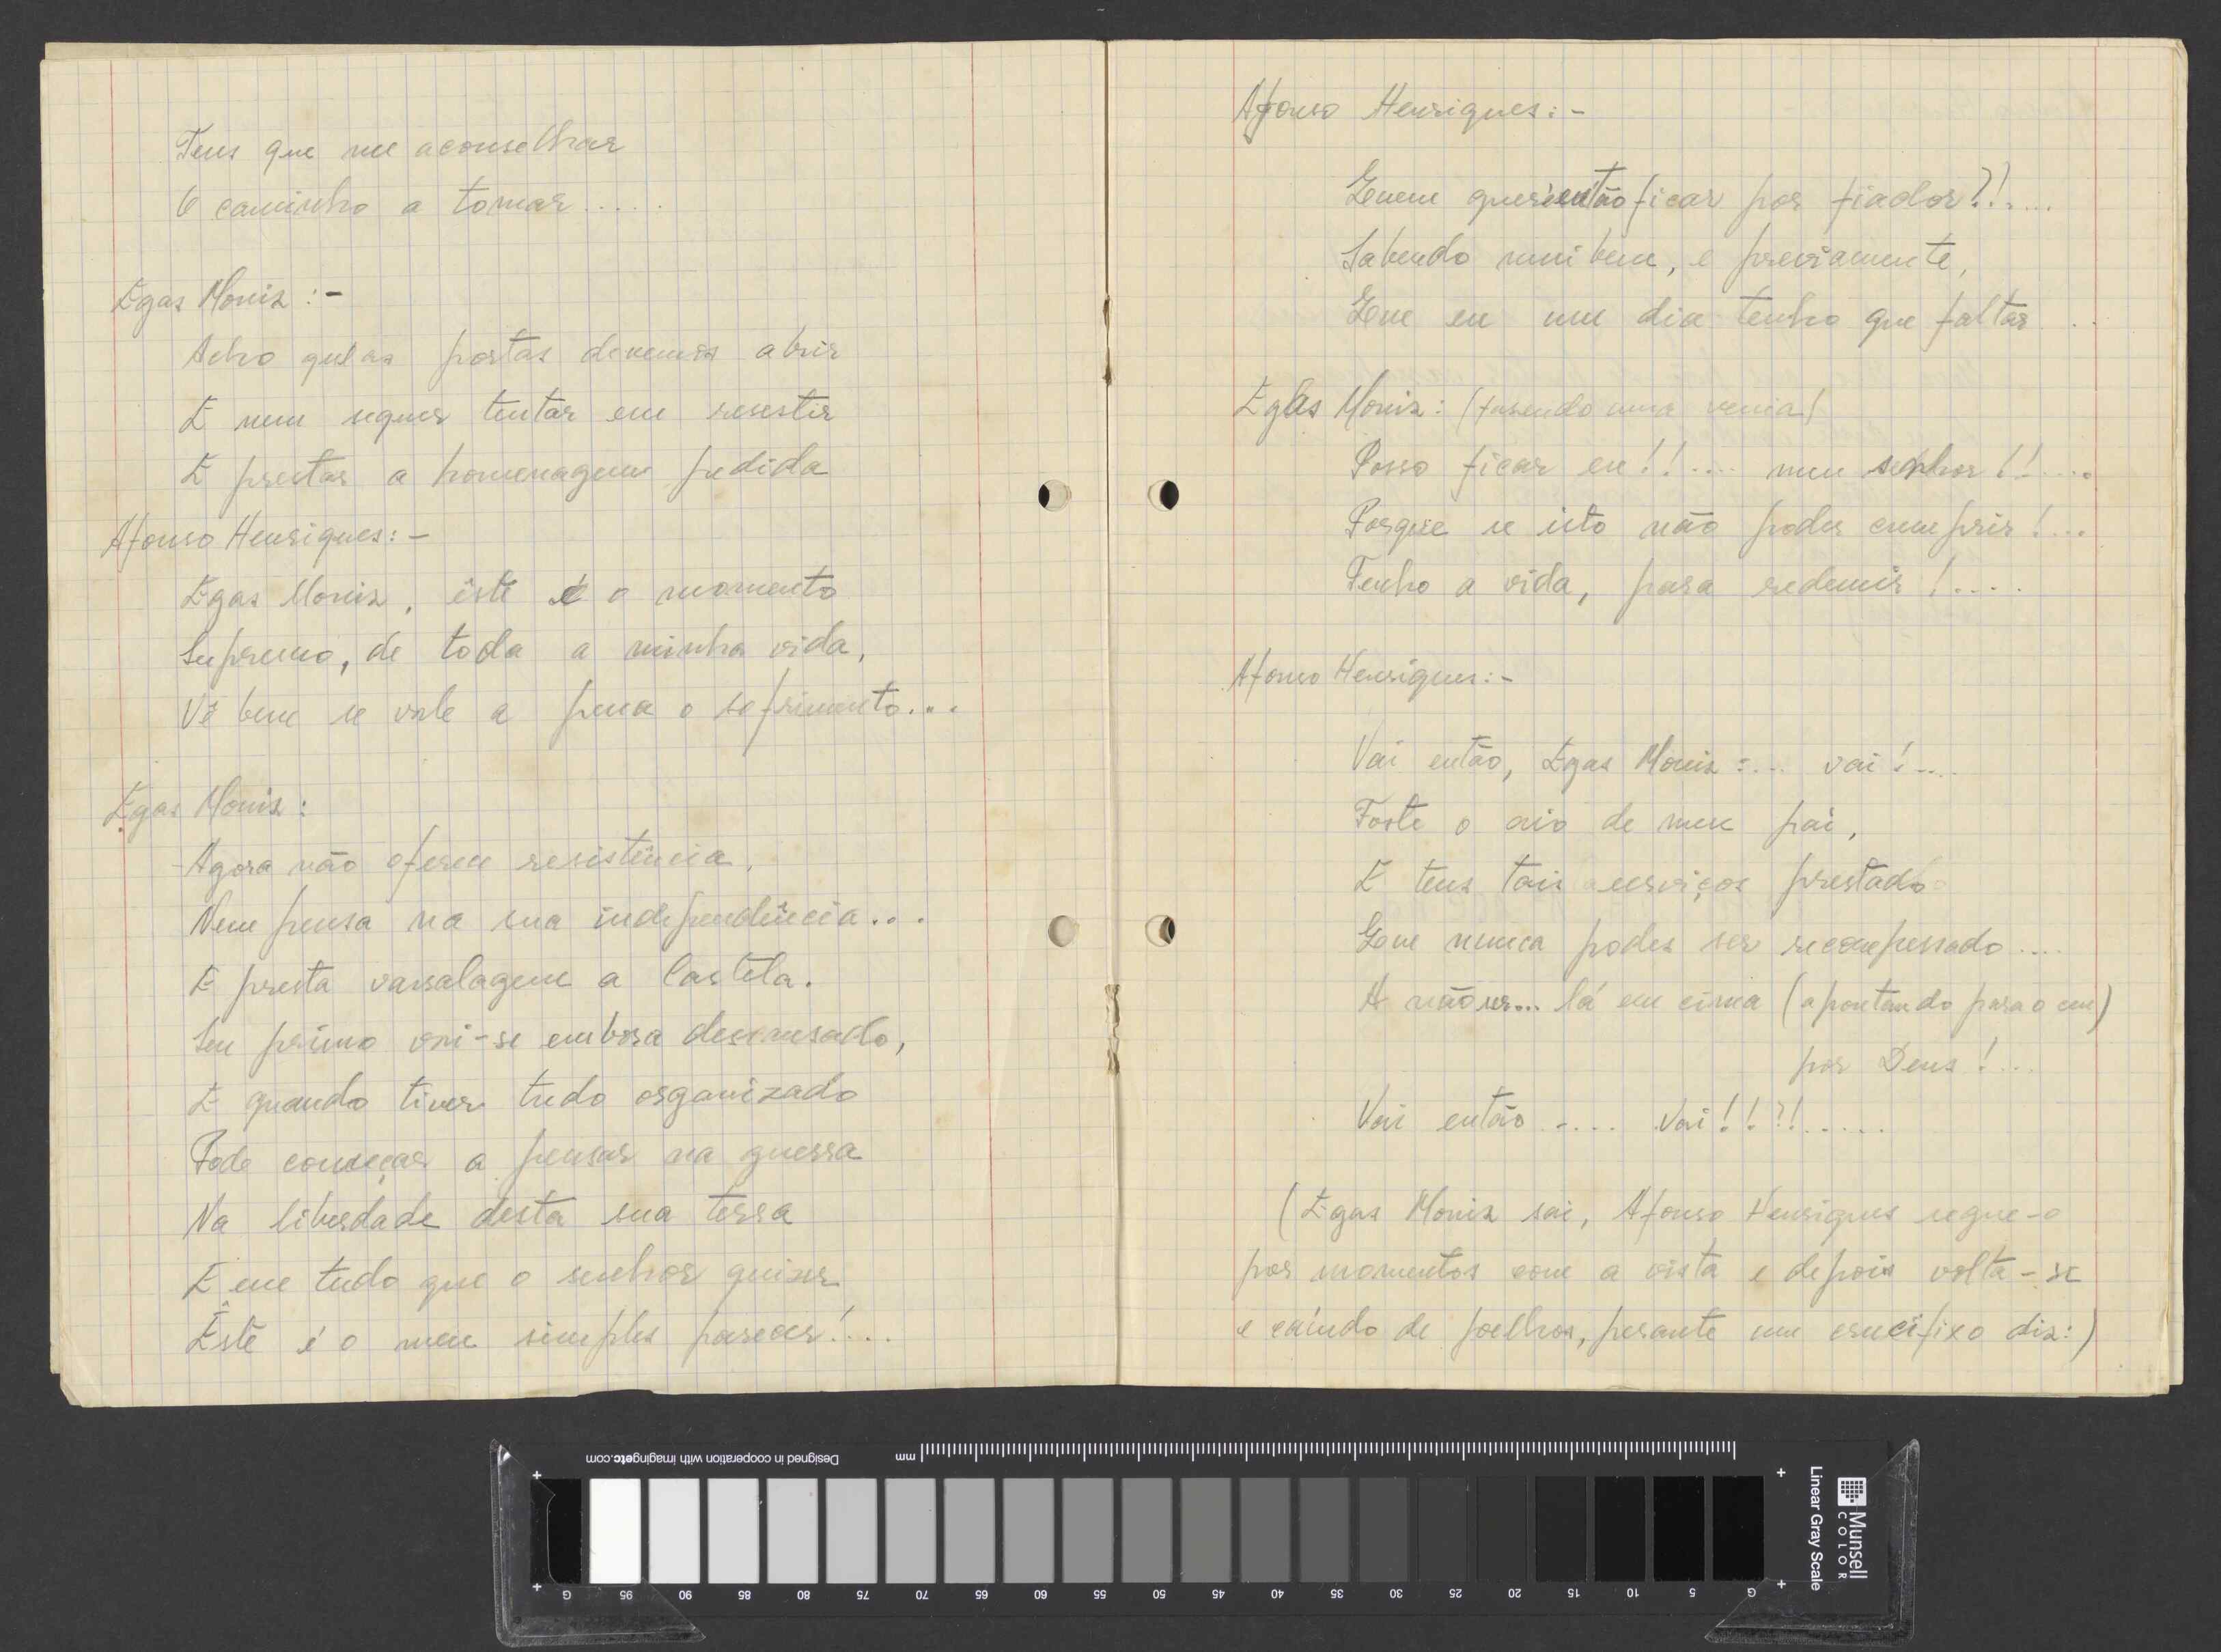 Tens que me aconselhar
O caminho a tomar.....
Egas Moniz :-
Acho que as portas devemos abrir
E nem sequer tentar em resestir
E prestar a homenagem pedida
Afonso Henriques:-
Egas Moniz, êste é o momento
Supremo, de toda a minha vida,
Vê bem se vale a pena o sofrimento...
Egas Moniz:
Agora não oferece resistência.
Nem pensa na sua independência...
E presta vassalagem a Castela.
Seu primo vai-se embora descansado,
E quando tiver tudo organizado
Pode começar a pensar na guerra
Na liberdade desta sua terra
E em tudo que o senhor quizer
Êste é o meu simples parecer!....
Afonso Henriques:-
Quem quer então ficar por fiador?!....
Sabendo mui bem, e previamente,
Que eu um dia tenho que faltar...
Egas Moniz: (fasendo uma venia)
Posso ficar eu!!.... meu senhor!!....
Porque se isto não poder cumprir!...
Tenho a vida, para redemir!....
Afonso Henriques:-
Vai então, Egas Moniz:... vai!....
Foste o aio de meu pai,
E tens tais serviços prestado
Que nunca podes ser recompessado....
A não ser... lá em cima (apontando para o ceu)
por Deus!...
Vai então..... Vai!!?!.....
(Egas Moniz sai, Afonso Henriques segue-o
por momentos com a vista e depois volta-se
e caíndo de joelhos, perante um crucifixo diz:)
Designed in cooperation with imagingetc.com
mm
G 95 90 85 80 75 70 65 60 55 50 45 40 35 30 25 20 15 10 5 G
Munsell
COLOR
Linear Gray Scale